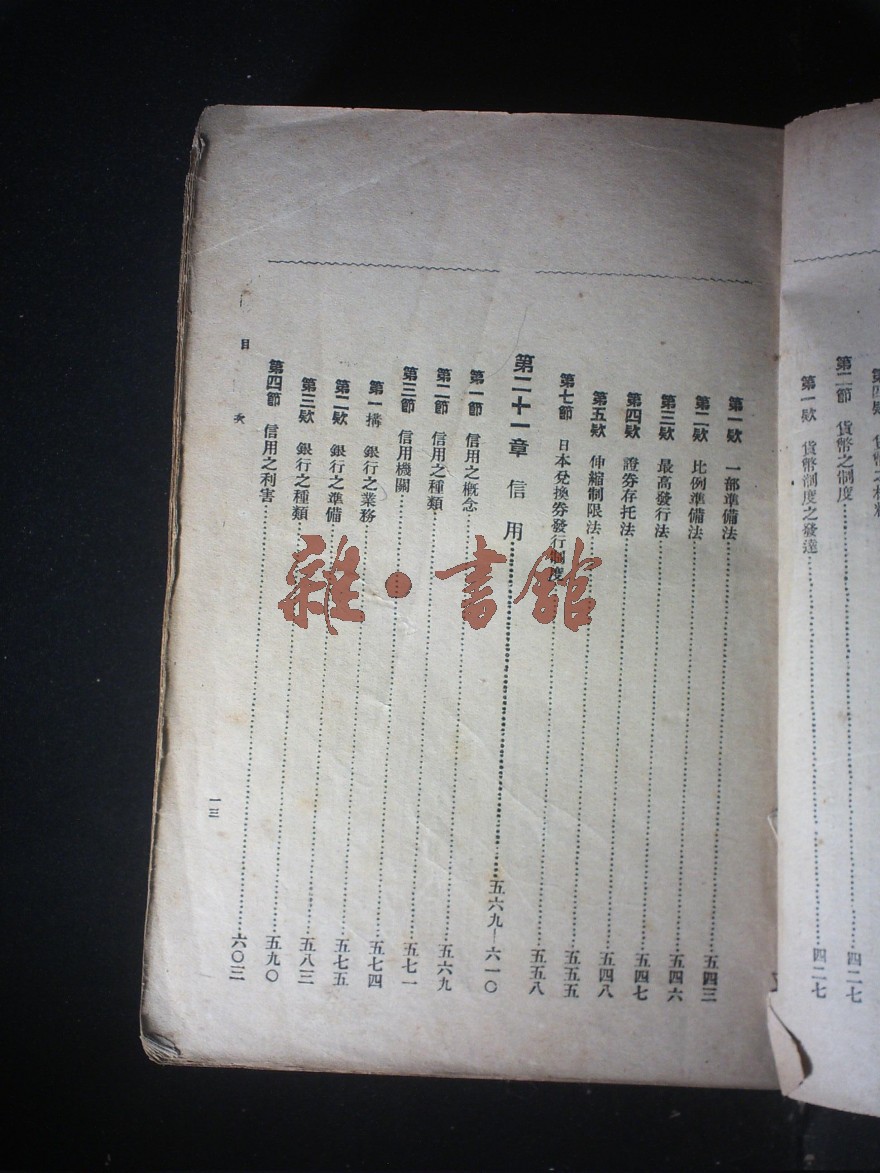 第二節 貨幣之制度……四二七
第一欵 貨幣制度之發達……四二七
第一欵 一部準備法……五四三
第二欵 比例準備法……五四六
第三欵 最高發行法……五四七
第四欵 證券存托法……五四八
第五欵 伸縮制限法……五五五
第七節 日本兌換券發行制度……五五八
第二十一章 信用……五六九—六一〇
第一節 信用之概念……五六九
第二節 信用之種類……五七一
第三節 信用機關……五七四
第一搆 銀行之業務……五七五
第二欵 銀行之準備……五八三
第三欵 銀行之種類……五九〇
第四節 信用之利害……六〇三
目 次
一三
雜·書館